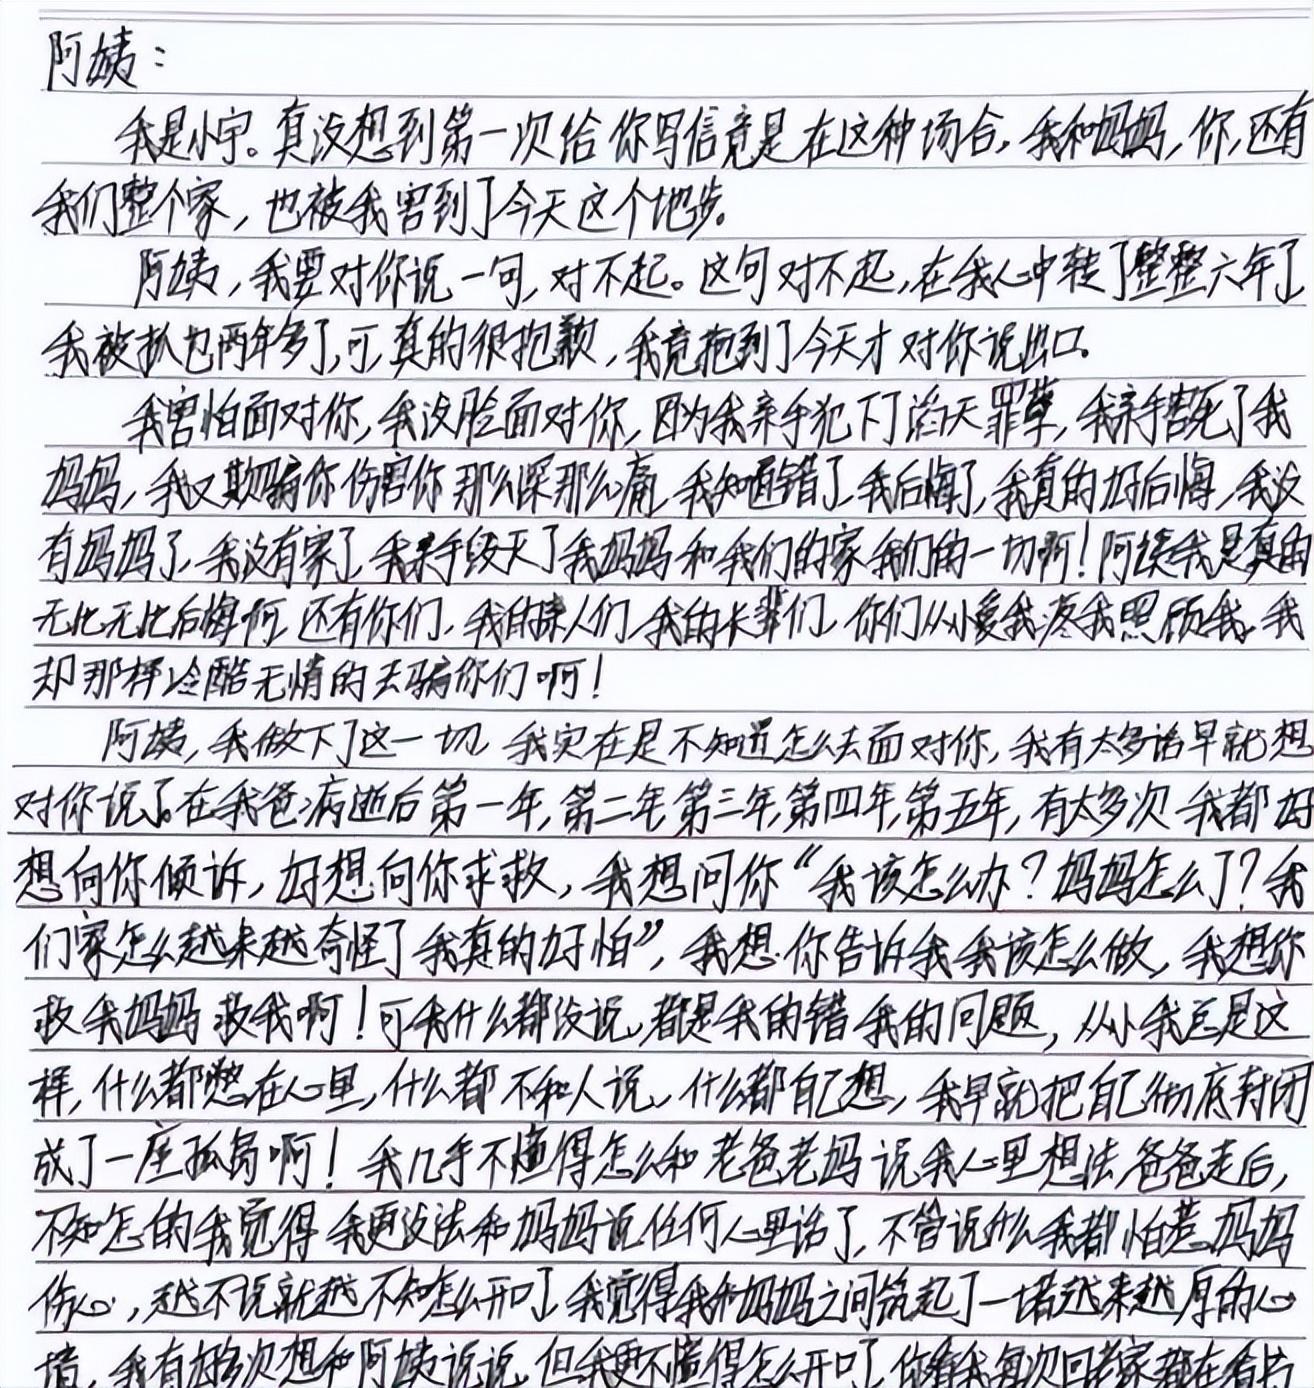 阿姨：
我是小宇。真没想到第一次给你写信竟是在这种场合，我和妈妈，你，还有
我们整个家，也被我害到了今天这个地步。
阿姨，我要对你说一句，对不起。这句对不起，在我心中转了整整六年了，
我被抓也两年多了，可，真的很抱歉，我竟拖到了今天才对你说出口。
我害怕面对你，我没脸面对你，因为我亲手犯下了滔天罪孽，我亲手害死了我
妈妈，我又欺骗你伤害你那么深那么痛，我知道错了，我后悔了，我真的好后悔，我没
有妈妈了，我没有家了，我亲手毁灭了我妈妈和我们的家我们的一切啊！阿姨我是真的
无比无比后悔啊，还有你们，我的亲人们，我的长辈们，你们从小爱我疼我照顾我，我
却那样冷酷无情的去骗你们啊！
阿姨，我做下了这一切，我实在是不知道怎么去面对你，我有太多话早就想
对你说了。在我爸病逝后第一年，第二年，第三年，第四年，第五年，有太多次我都好
想向你倾诉，好想向你求救，我想问你“我该怎么办？妈妈怎么了？我
们家怎么越来越奇怪了我真的好怕”，我想你告诉我我该怎么做，我想你
救我妈妈救我啊！可我什么都没说，都是我的错我的问题，从小我总是这
样，什么都憋在心里，什么都不和人说，什么都自己想，我早就把自己彻底封闭
成了一座孤岛啊！我几乎不懂得怎么和老爸老妈说我心里想法，爸爸走后，
不知怎的我觉得我更没法和妈妈说任何心里话了，不管说什么我都怕惹妈妈
伤心，越不说就越不知怎么开口了，我觉得我和妈妈之间筑起了一堵越来越厚的心
墙，我有好多次想和阿姨说说，但我更不懂得怎么开口了，你看我每次回老家都在看书